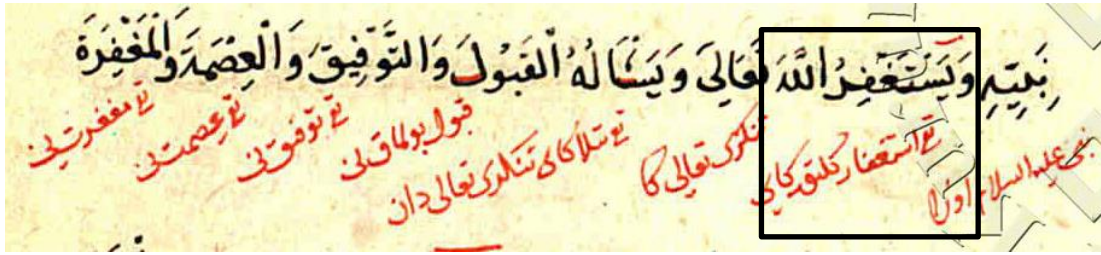 بِنَبِيِّهِ وَيَسْتَغْفِرُ اللّٰهَ تَعَالَى وَيَسْأَلُهُ الْقَبُولَ وَالتَّوْفِيقَ وَالْعِصْمَةَ وَالْمَغْفِرَةَ
نبى عليه السلام تقى استغفار تنكرى تعالى كا تنكرى تعالى دان قبول بولماق نى تقى توفيق نى تقى عصمت نى تقى مغفرت نى